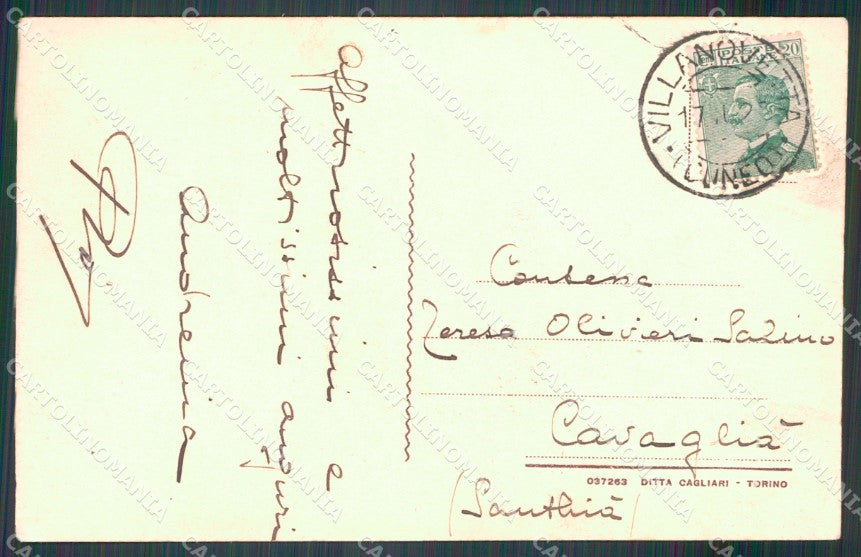 affettuosissimi e
moltissimi auguri
Andreina
VILLANOVETTA
(CUNEO)
POSTE ITALIANE
20
Contessa
Teresa Olivieri Salino
Cavaglià
037263 DITTA CAGLIARI - TORINO
(Santhià)
CARTOLINOMANIA